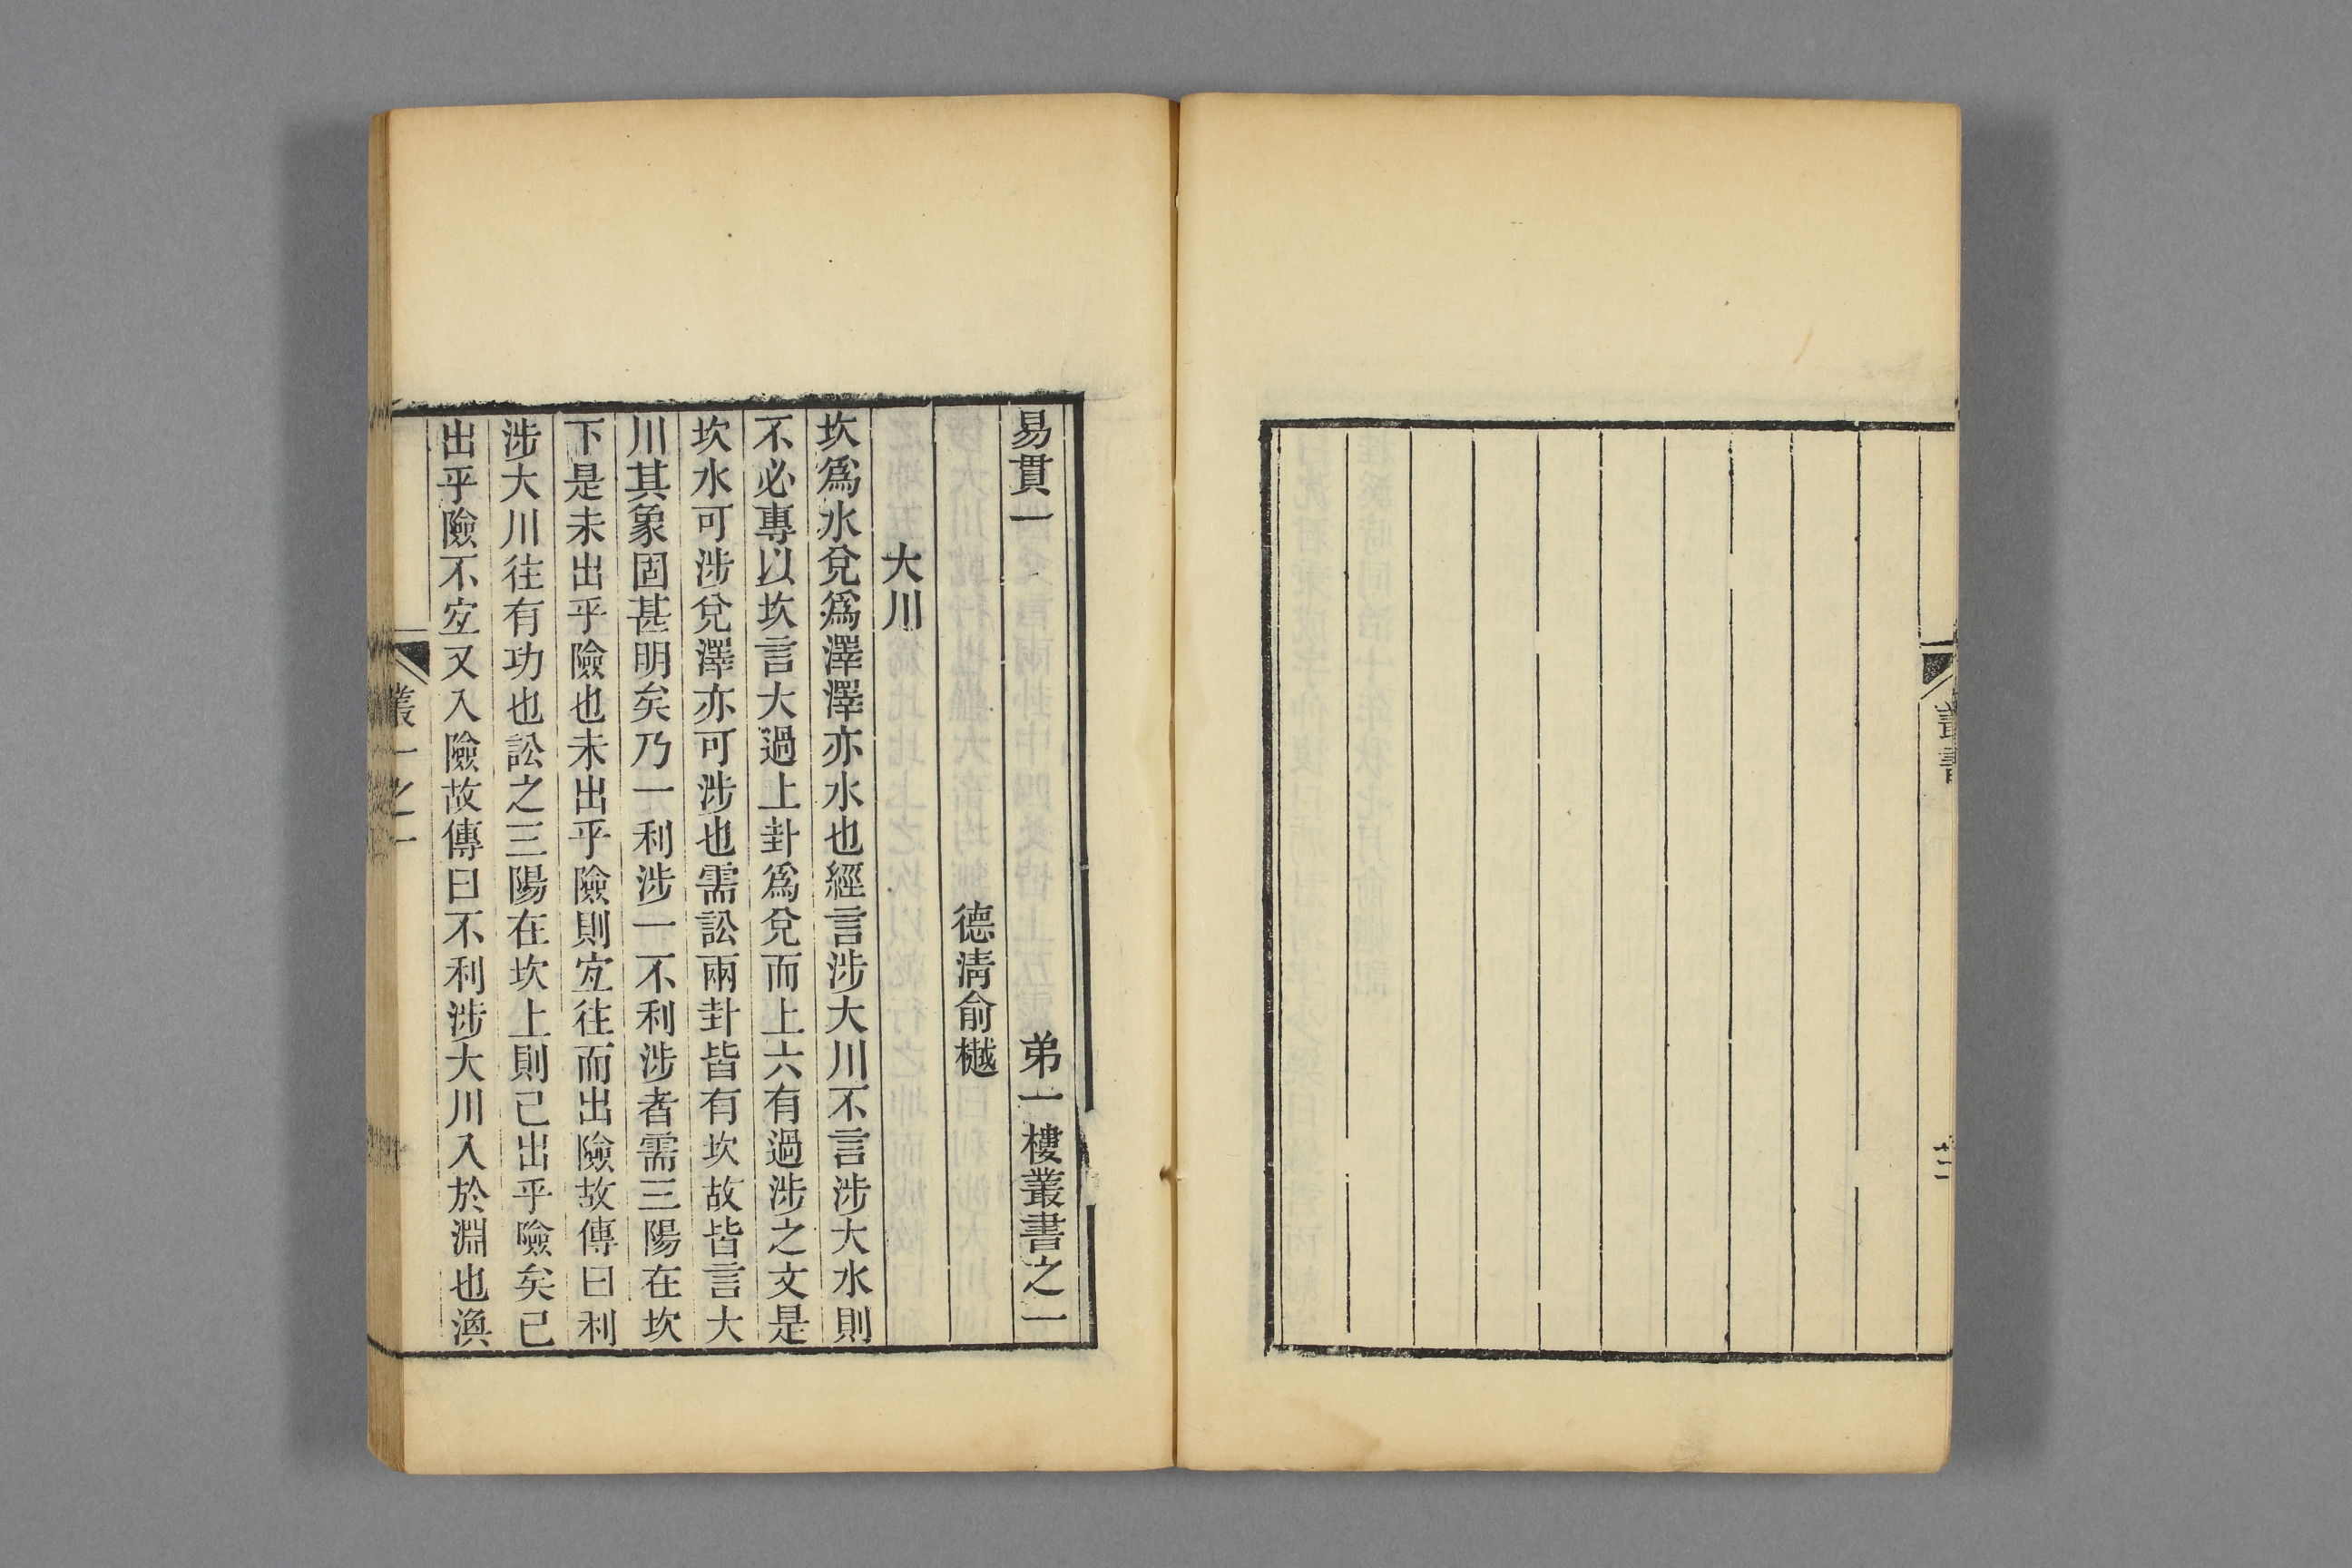 叢書
十二
易貫一　弟一樓叢書之一
德清俞樾
大川
坎爲水兌爲澤澤亦水也經言涉大川不言涉大水則
不必專以坎言大過上卦爲兌而上六有過涉之文是
坎水可涉兌澤亦可涉也需訟兩卦皆有坎故皆言大
川其象固甚明矣乃一利涉一不利涉者需三陽在坎
下是未出乎險也未出乎險則宐往而出險故傳曰利
涉大川往有功也訟之三陽在坎上則已出乎險矣已
出乎險不宐又入險故傳曰不利涉大川入於淵也渙
叢一之一